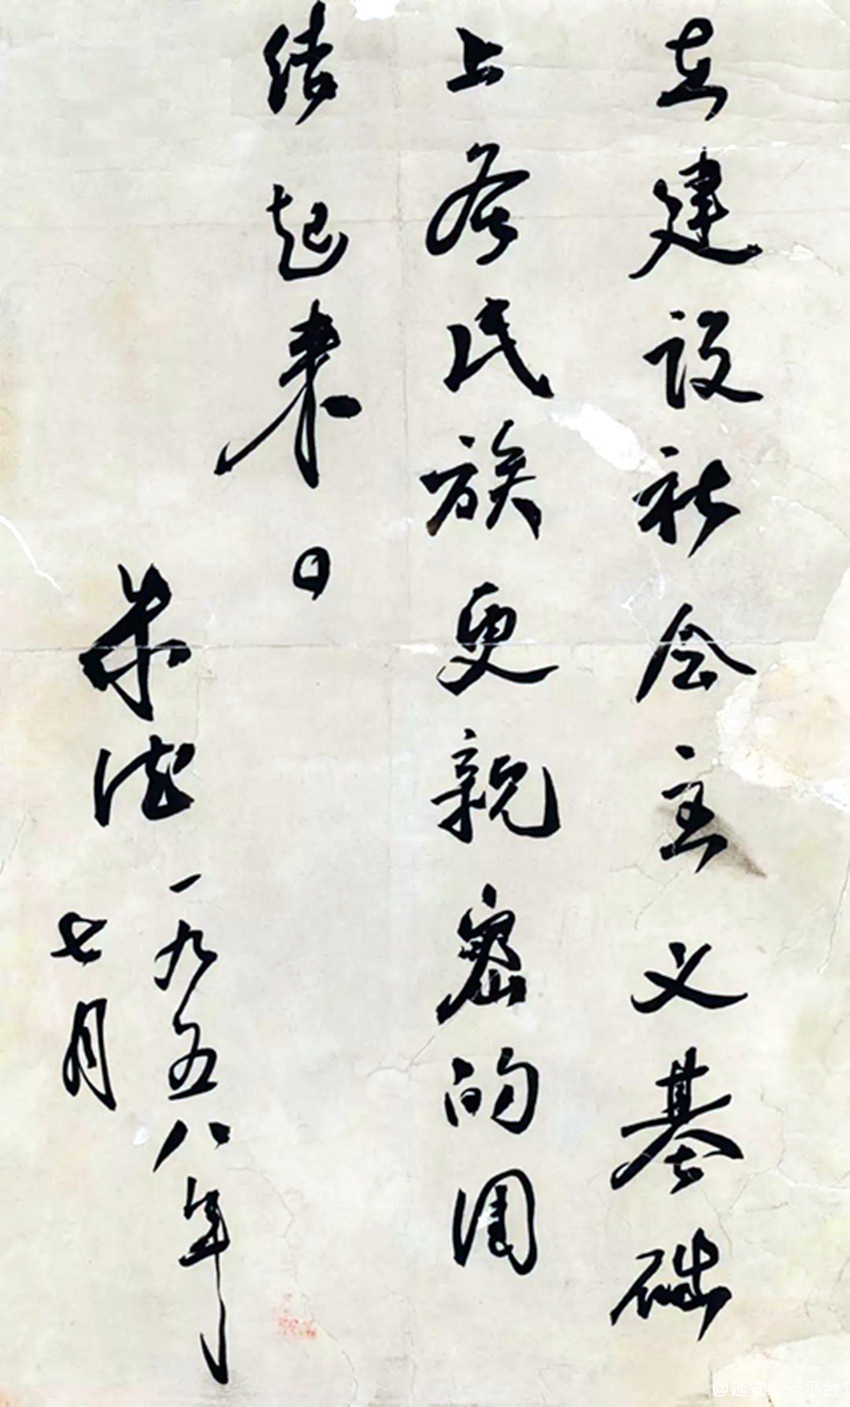 在建设社会主义基础
上各民族更亲密的团
结起来。
朱德
一九五八年
七月